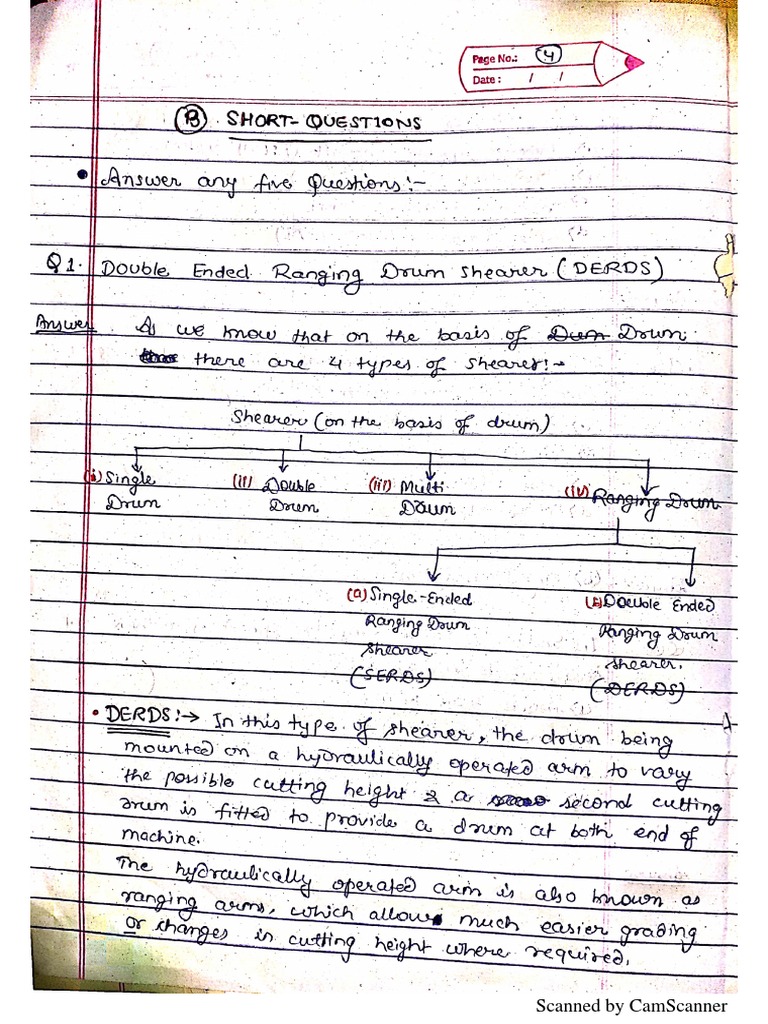 Page No.: 4
Date : / /
(B) SHORT-QUESTIONS
• Answer any five Questions:-
Q1. Double Ended Ranging Drum Shearer (DERDS)
Answer As we know that on the basis of Drum
there are 4 types of shearer:-
Shearer (on the basis of drum)
(i) Single (ii) Double (iii) Multi (iv) Ranging Drum
Drum Drum Drum
(a) Single-Ended (b) Double Ended
Ranging Drum Ranging Drum
Shearer Shearer.
(SERDS) (DERDS)
• DERDS:→ In this type of shearer, the drum being
mounted on a hydraulically operated arm to vary
the possible cutting height & a second cutting
drum is fitted to provide a drum at both end of
machine.
The hydraulically operated arm is also known as
ranging arms, which allow much easier grading
or changes in cutting height where required.
Scanned by CamScanner